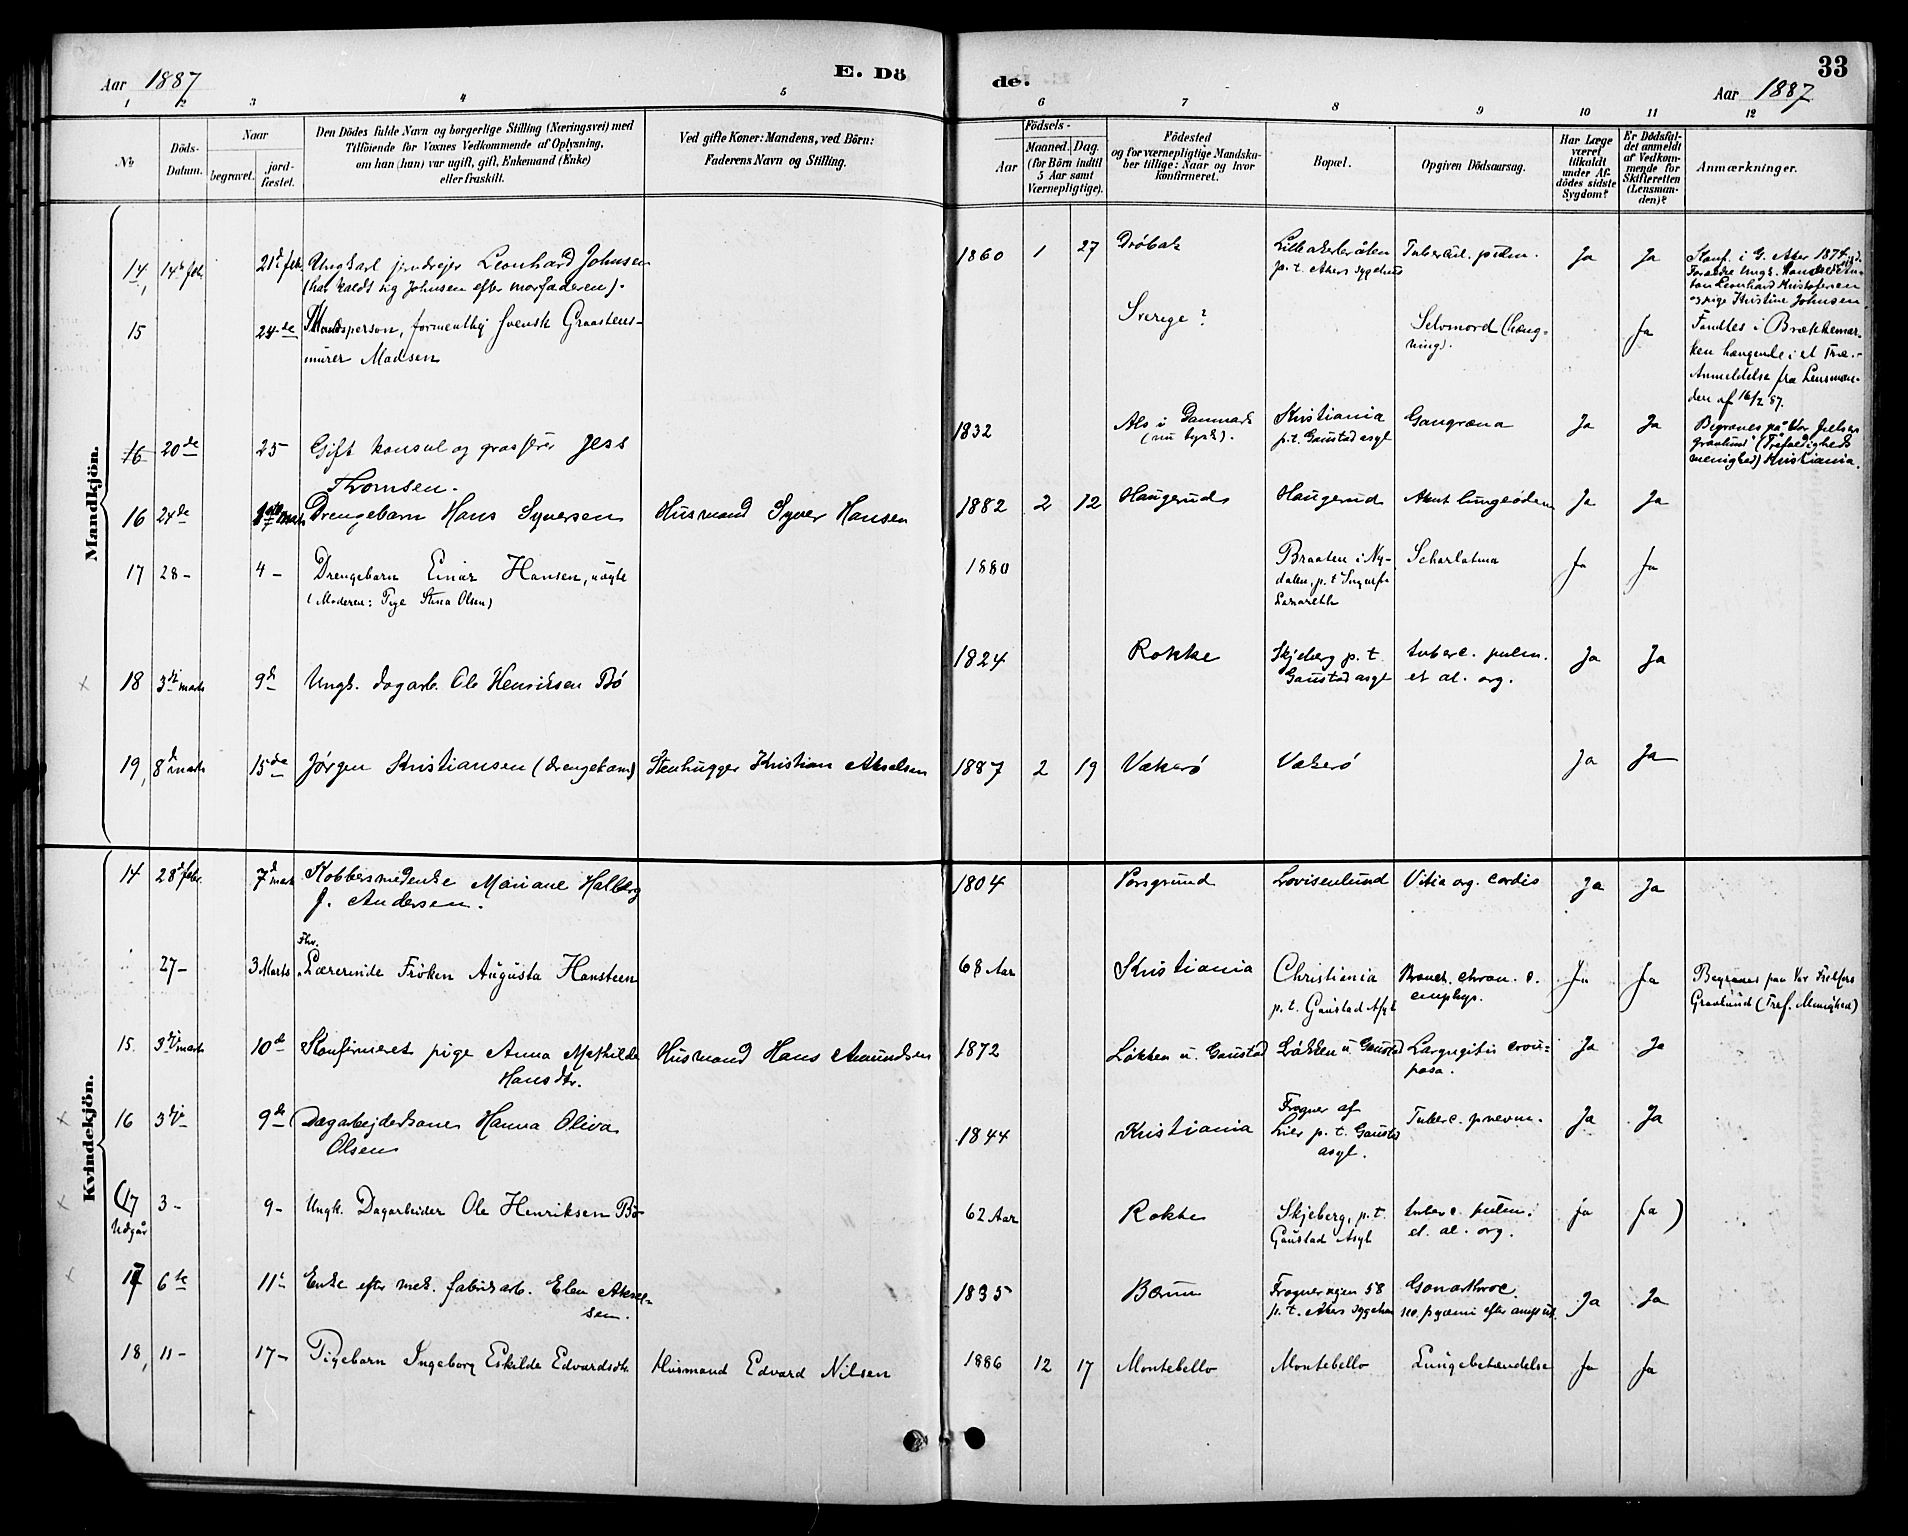 Aar 1887
E. Dö
de.
Aar 1887
33
1 2 3 4 5 6 7 8 9 10 11 12
No
Döds-
Datum.
Naar
begravet.
jord-
fæstet.
Den Dödes fulde Navn og borgerlige Stilling (Næringsvei) med
Tilföiende for Voxnes Vedkommende af Oplysning,
om han (hun) var ugift, gift, Enkemand (Enke)
eller fraskilt.
Ved gifte Koner: Mandens, ved Börn:
Faderens Navn og Stilling.
Födsels-
Aar
Maaned. Dag.
(for Börn indtil
5 Aar samt
Værnepligtige).
Födested
og for værnepligtige Mandska-
ber tillige: Naar og hvor
konfirmeret.
Bopæl.
Opgiven Dödsaarsag.
Har Læge
været
tilkaldt
under Af-
dödes sidste
Sygdom?
Er Dödsfal-
det anmeldt
af Vedkom-
mende for
Skifteretten
(Lensman-
den)?
Anmærkninger.
Mandkjön.
14, 14de febr. 21de febr. Ungkarl jerndreier Leonhard Johnsen
(har kaldt sig Johnsen efter morfaderen).
1860 1 27 Drøbak Lilleakerbråten
p.t. Akers sygehus
Tubercul. pulm. Ja Ja
Konf. i G. Aker 1874
Forældre Ungk.
Leonhard Kristofersen
og pige Kristine Johnsen
15 24de Mandsperson, formentlig svensk Graastens-
murer Madsen
Sverege? Selvmord (hæng-
ning). Ja
Fandtes i Brækkemar-
ken hængende i et Træ.-
Anmeldelse fra Lensman-
den af 16/2 87.
16 20de 25 Gift konsul og grosserer Jess
Thomsen.
1832 Als i Danmark
(nu tysk).
Kristiania
p.t. Gaustad asyl
Gangræna Ja Ja
Begraves på Vor frelsers
gravlund (Trefoldigheds
menighed) Kristiania.
16 24de Marts Drengebarn Hans Syversen Husmand Syver Hansen
1882 2 12 Haugerud Haugerud Akut lungeødem Ja Ja
17 28 - 4 - Drengebarn Einar Hansen, uægte
(Moderen: Pige Stina Olsen)
1880 Braaten i Ny-
dalen, p.t.
Lazareth
Scharlatina Ja Ja
18 3die marts 9de Ungk. dagarb. Ole Henriksen Bø
1824 Rokke Skjeberg p.t.
Gaustad asyl
tuberc. pulm.
et al. org. Ja Ja
19, 8de marts 15de Jørgen Kristiansen (drengebarn) Stenhugger Kristian Akselsen
1887 2 19 Vækerø Vækerø Ja Ja
Kvindekjön.
14 28de febr. 7de marts Kobbersmedenke Mariane Halberg
f. Andersen.
1804 Porsgrund Lovisenlund Vitia org. cordis Ja Ja
27 - 3 Marts Fhv.
Lærerinde Frøken Augusta Hansteen
68 Aar Kristiania Christiania
p.t. Gaustad Asyl
Bronch. chron. c.
emphys. Ja Ja
Begraves paa Vor Frelsers
Gravlund (Tref. Menighed)
15. 3die marts 10de Konfirmeret pige Anna Mathilde
Hansdtr.
Husmand Hans Amundsen
1872 Løkken u. Gaustad Løkken u. Gaustad Laryngitis crou-
posa. Ja Ja
16 3die 9de Dagarbeiderkone Hanna Oliva
Olsen
1844 Kristiania Frogner af
Lier p.t. Gaustad
asyl.
Tuberc. pnevm. Ja Ja
(17 3 - 9 - Ungk. Dagarbeider Ole Henriksen Bø
Udgår
62 Aar Rokke Skjeberg, p.t.
Gaustad Asyl
tuberc. pulm.
et. al. org. ja ja )
17 6te 11te Enke efter mek. fabrikarb. Elen Aksel-
sen.
1835 Bærum Frognerveien 58
p.t. Akers sygehus
Gonarthroc.
pyæmi efter amput. Ja Ja
18, 11 - 17 - Pigebarn Ingeborg Eskilda Edvardsdtr. Husmand Edvard Nilsen
1886 12 17 Montebello Montebello Lungebetændelse Ja Ja